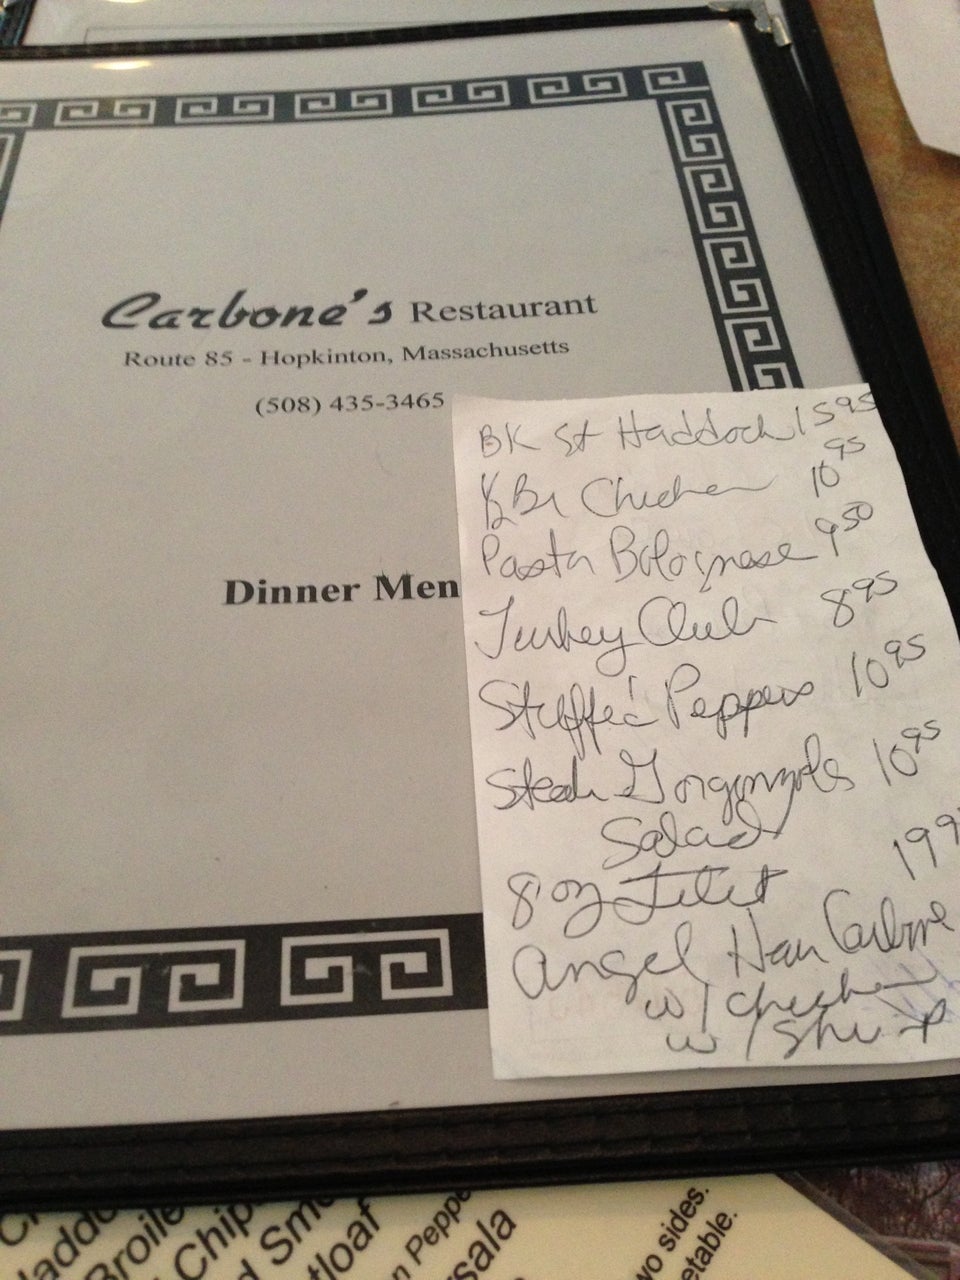 Carbone's Restaurant
Route 85 - Hopkinton, Massachusetts
(508) 435-3465
Dinner Men
BK St Haddock 15 95
1/2 BR Chicken 10 95
Pasta Bolognese 9 50
Turkey Club 8 95
Stuffed Peppers 10 95
Steak Gorgonzola 10 95
Salad
8 oz Filet 19 9
Angel Hair Carbone
w/ Chicken
w/ Shrimp
addo
Broile
Chip
d Smo
tloaf
n Peppe
sala
wo sides.
etable.